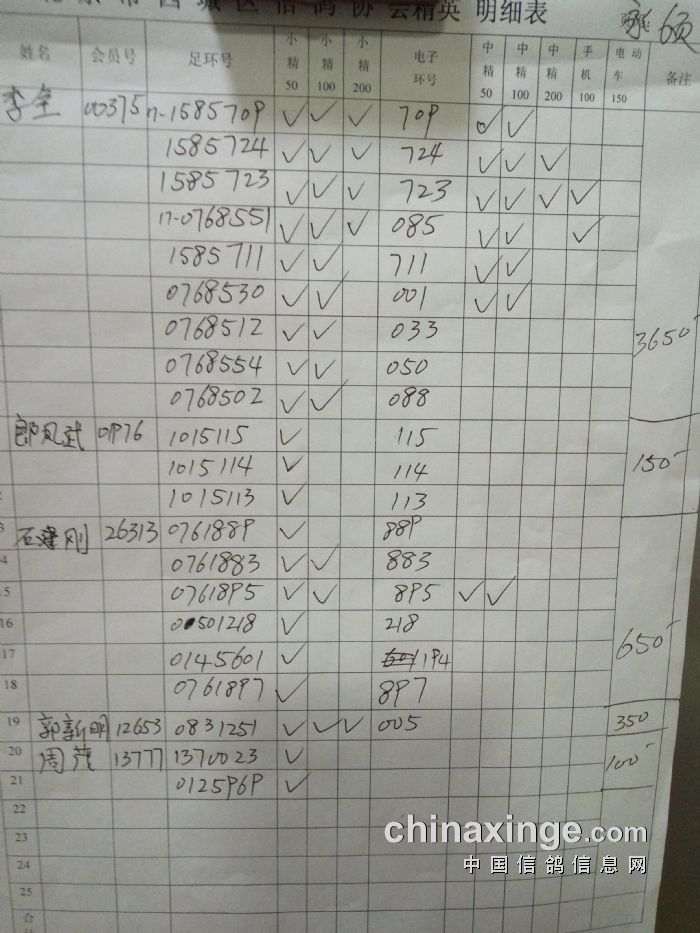 市西城区信鸽协会精英 明细表
姓名 会员号 足环号 小精50 小精100 小精200 电子环号 中精50 中精100 中精200 手机100 电动车150 备注
李全 00375 17-1585709 ✓ ✓ ✓ 709 ✓ ✓
1585724 ✓ ✓ ✓ 724 ✓ ✓ ✓
1585723 ✓ ✓ ✓ 723 ✓ ✓ ✓ ✓
17-0768551 ✓ ✓ ✓ 085 ✓ ✓ ✓
1585711 ✓ ✓ 711 ✓ ✓
0768530 ✓ ✓ 001 ✓ ✓
0768512 ✓ ✓ 033 3650
0768554 ✓ ✓ 050
0768502 ✓ ✓ 088
郎凤武 01976 1015115 ✓ 115
1015114 ✓ 114 150
1015113 ✓ 113
石建刚 26313 0761889 ✓ 889
4 0761883 ✓ ✓ 883
15 0761895 ✓ ✓ 895 ✓ ✓
16 0501218 ✓ 218
17 0145601 ✓ 194 650
18 0761897 ✓ 897
19 郭新明 12653 0831251 ✓ ✓ ✓ 005 350
20 周茂 13777 1370023 ✓ 100
21 0125969 ✓
22
23
24
25
合
chinaxinge.com
中国信鸽信息网